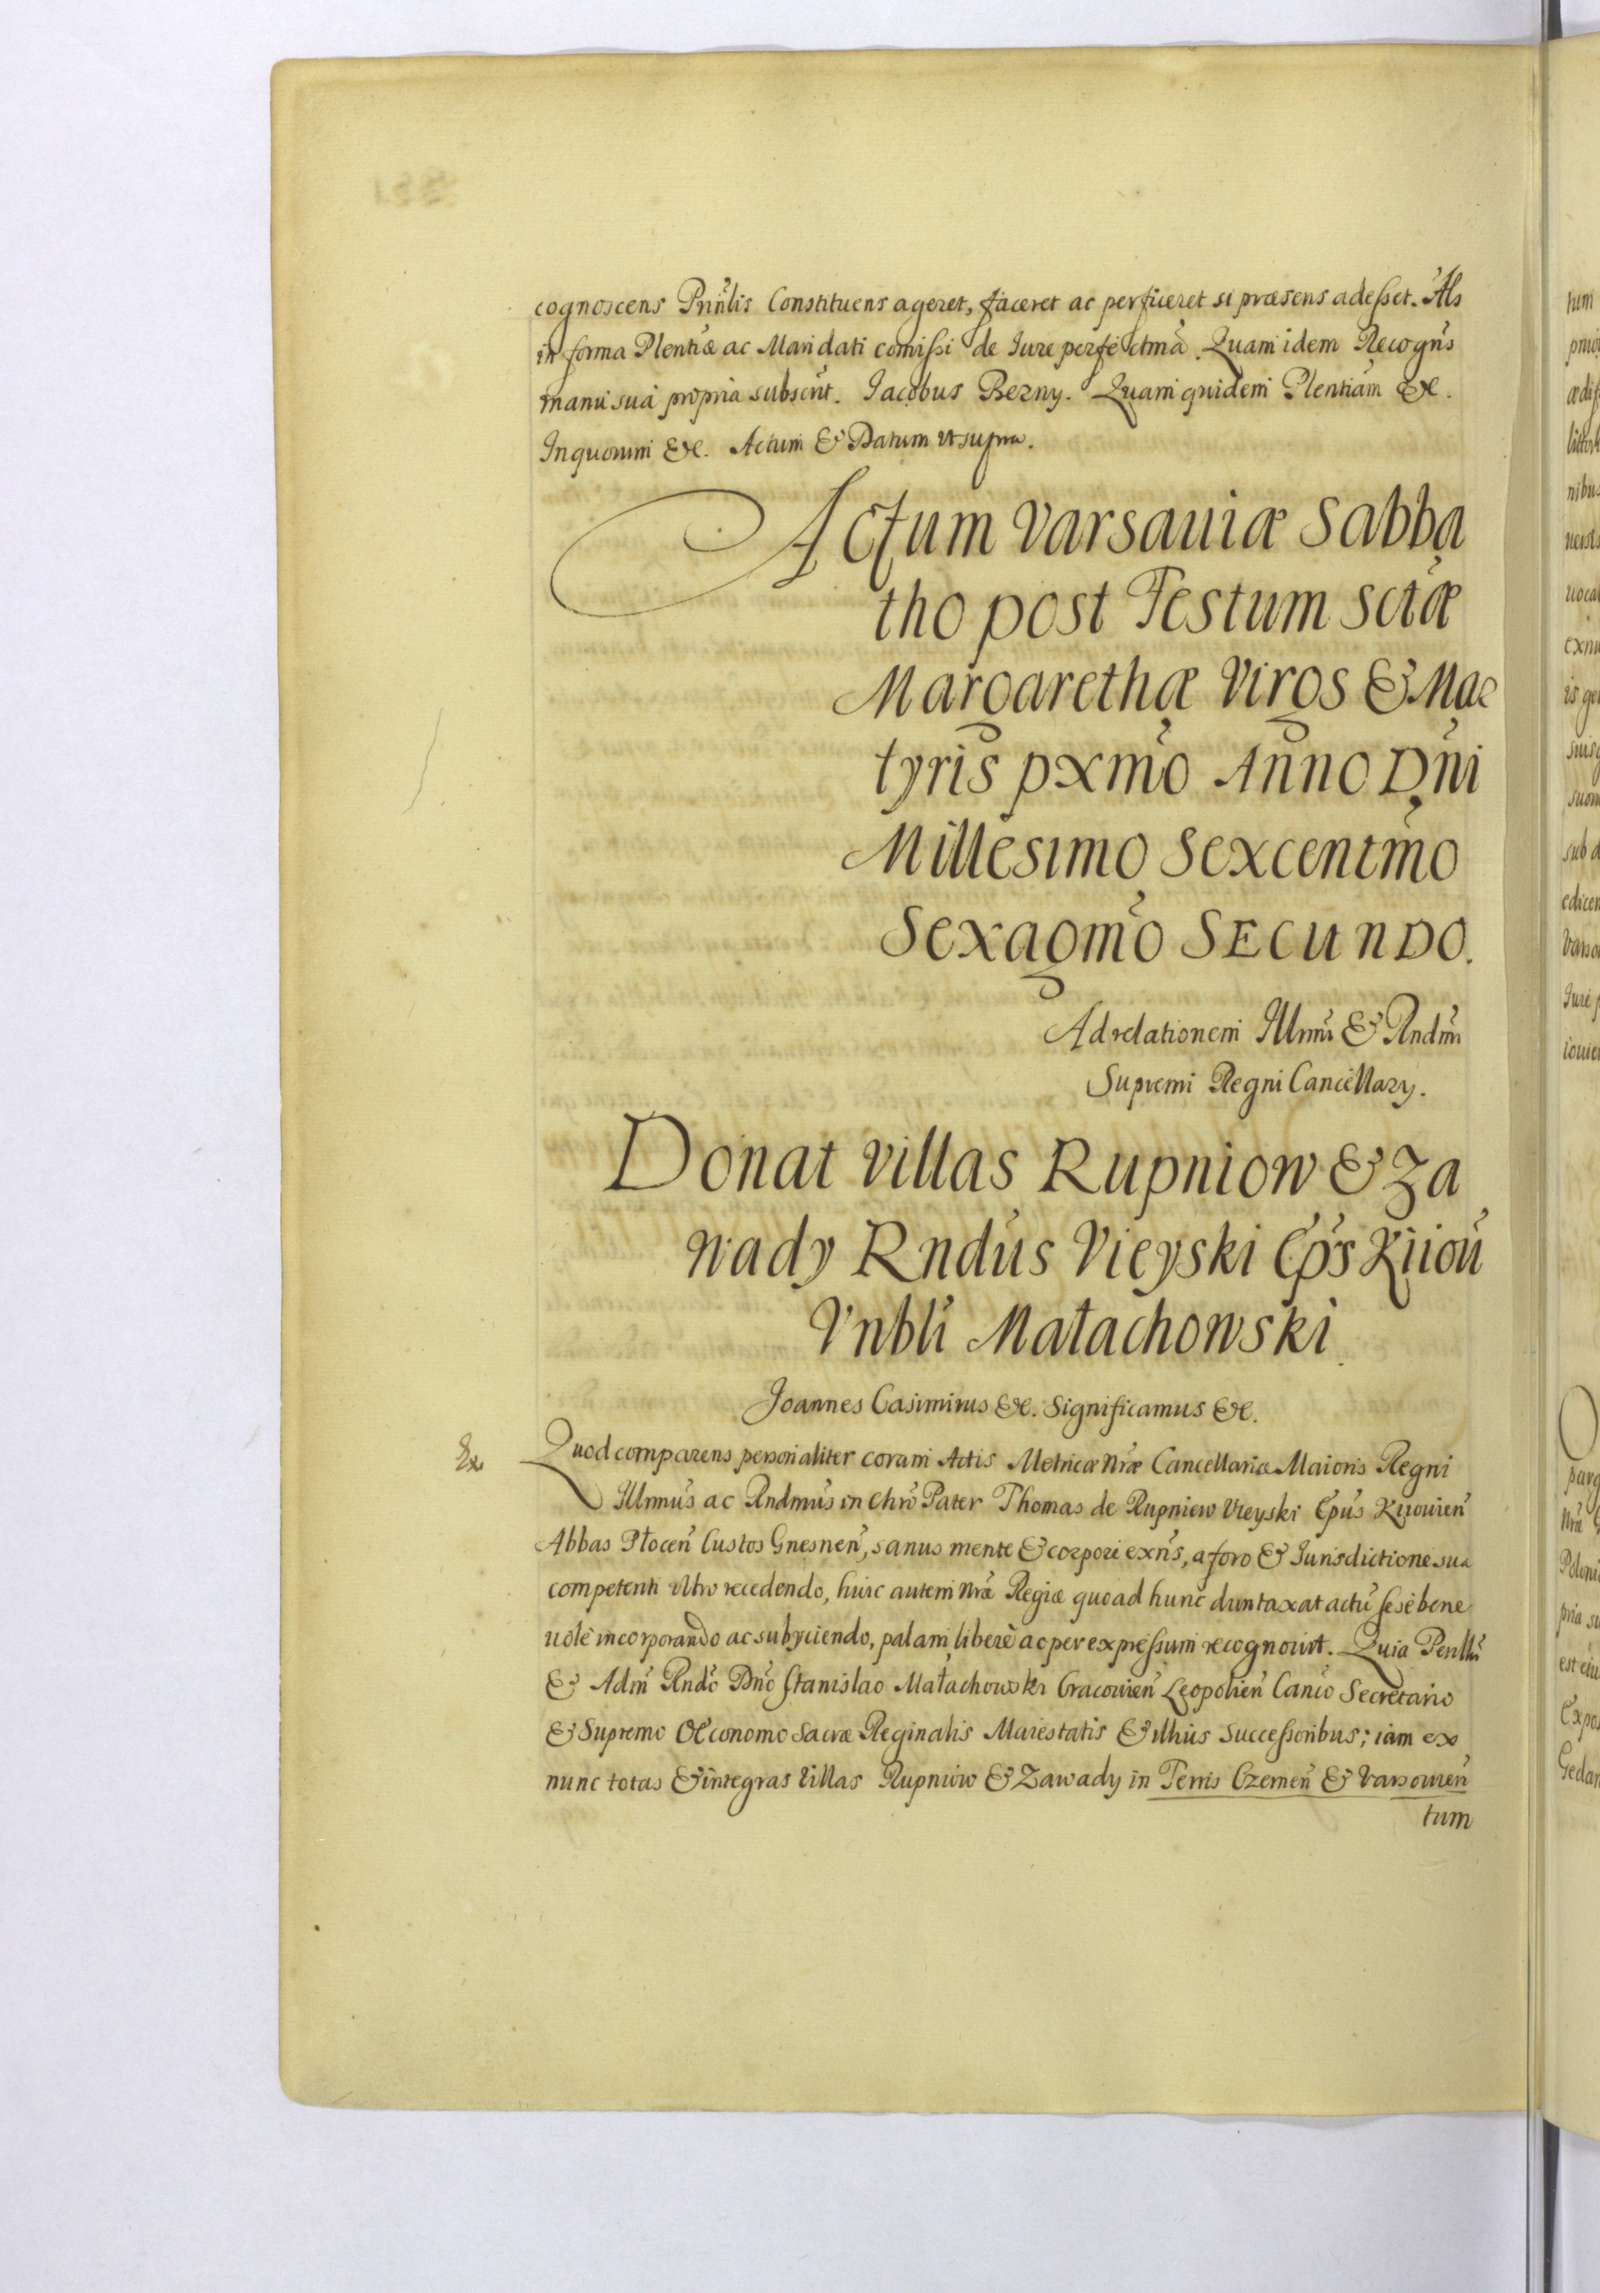 cognoscens Prin̄lis Constituens ageret, faceret ac perficeret si præsens adesset. Als
in forma Plenti̇æ ac Mandati comissi de Iure perfectmā. Quam idem Recogn̄s
manu suá propria subscrit. Iacobus Bezny. Quam quidem Plentiam &c.
In quorum &c. Actum & Datum ut supra.
Actum Varsauiæ Sabba
tho post Festum Sctæ
Margarethæ Virgs & Mar
tyris pxmo Anno Dni
Millesimo Sexcentmo
Sexagmo SECUNDO.
Ad relationem Illmi & Rndmi
Supremi Regni Cancellary.
Donat villas Rupniow & Za
wady Rndus Vieyski Eps Kiiou
Vnbli Małachowski
Joannes Casimirus &c. Significamus &c.
Ex Quod comparens personaliter coram Actis Metricæ Nræ Cancellariæ Maioris Regni
Illmus ac Rndmus in Chro Pater Thomas de Rupniew Vieyski Epus Kiiouien
Abbas Płocen Custos Gnesnen, sanus mente & corpore exns, a foro & Iurisdictione sua
competenti ultro recedendo, huic autem Nræ Regiæ quoad hunc duntaxat actū sesé bene
uolè incorporando ac subyciendo, palam liberè ac per expressum recognouit. Quia Perilli
& Adm Rndo Dno Stanislao Małachowski Cracouien Leopolien Canco Secretario
& Supremo Œconomo Sacræ Reginalis Maiestatis & illius successoribus; iam ex
nunc totas & integras Villas Rupniow & Zawady in Terris Czernen & Varsouien
tum